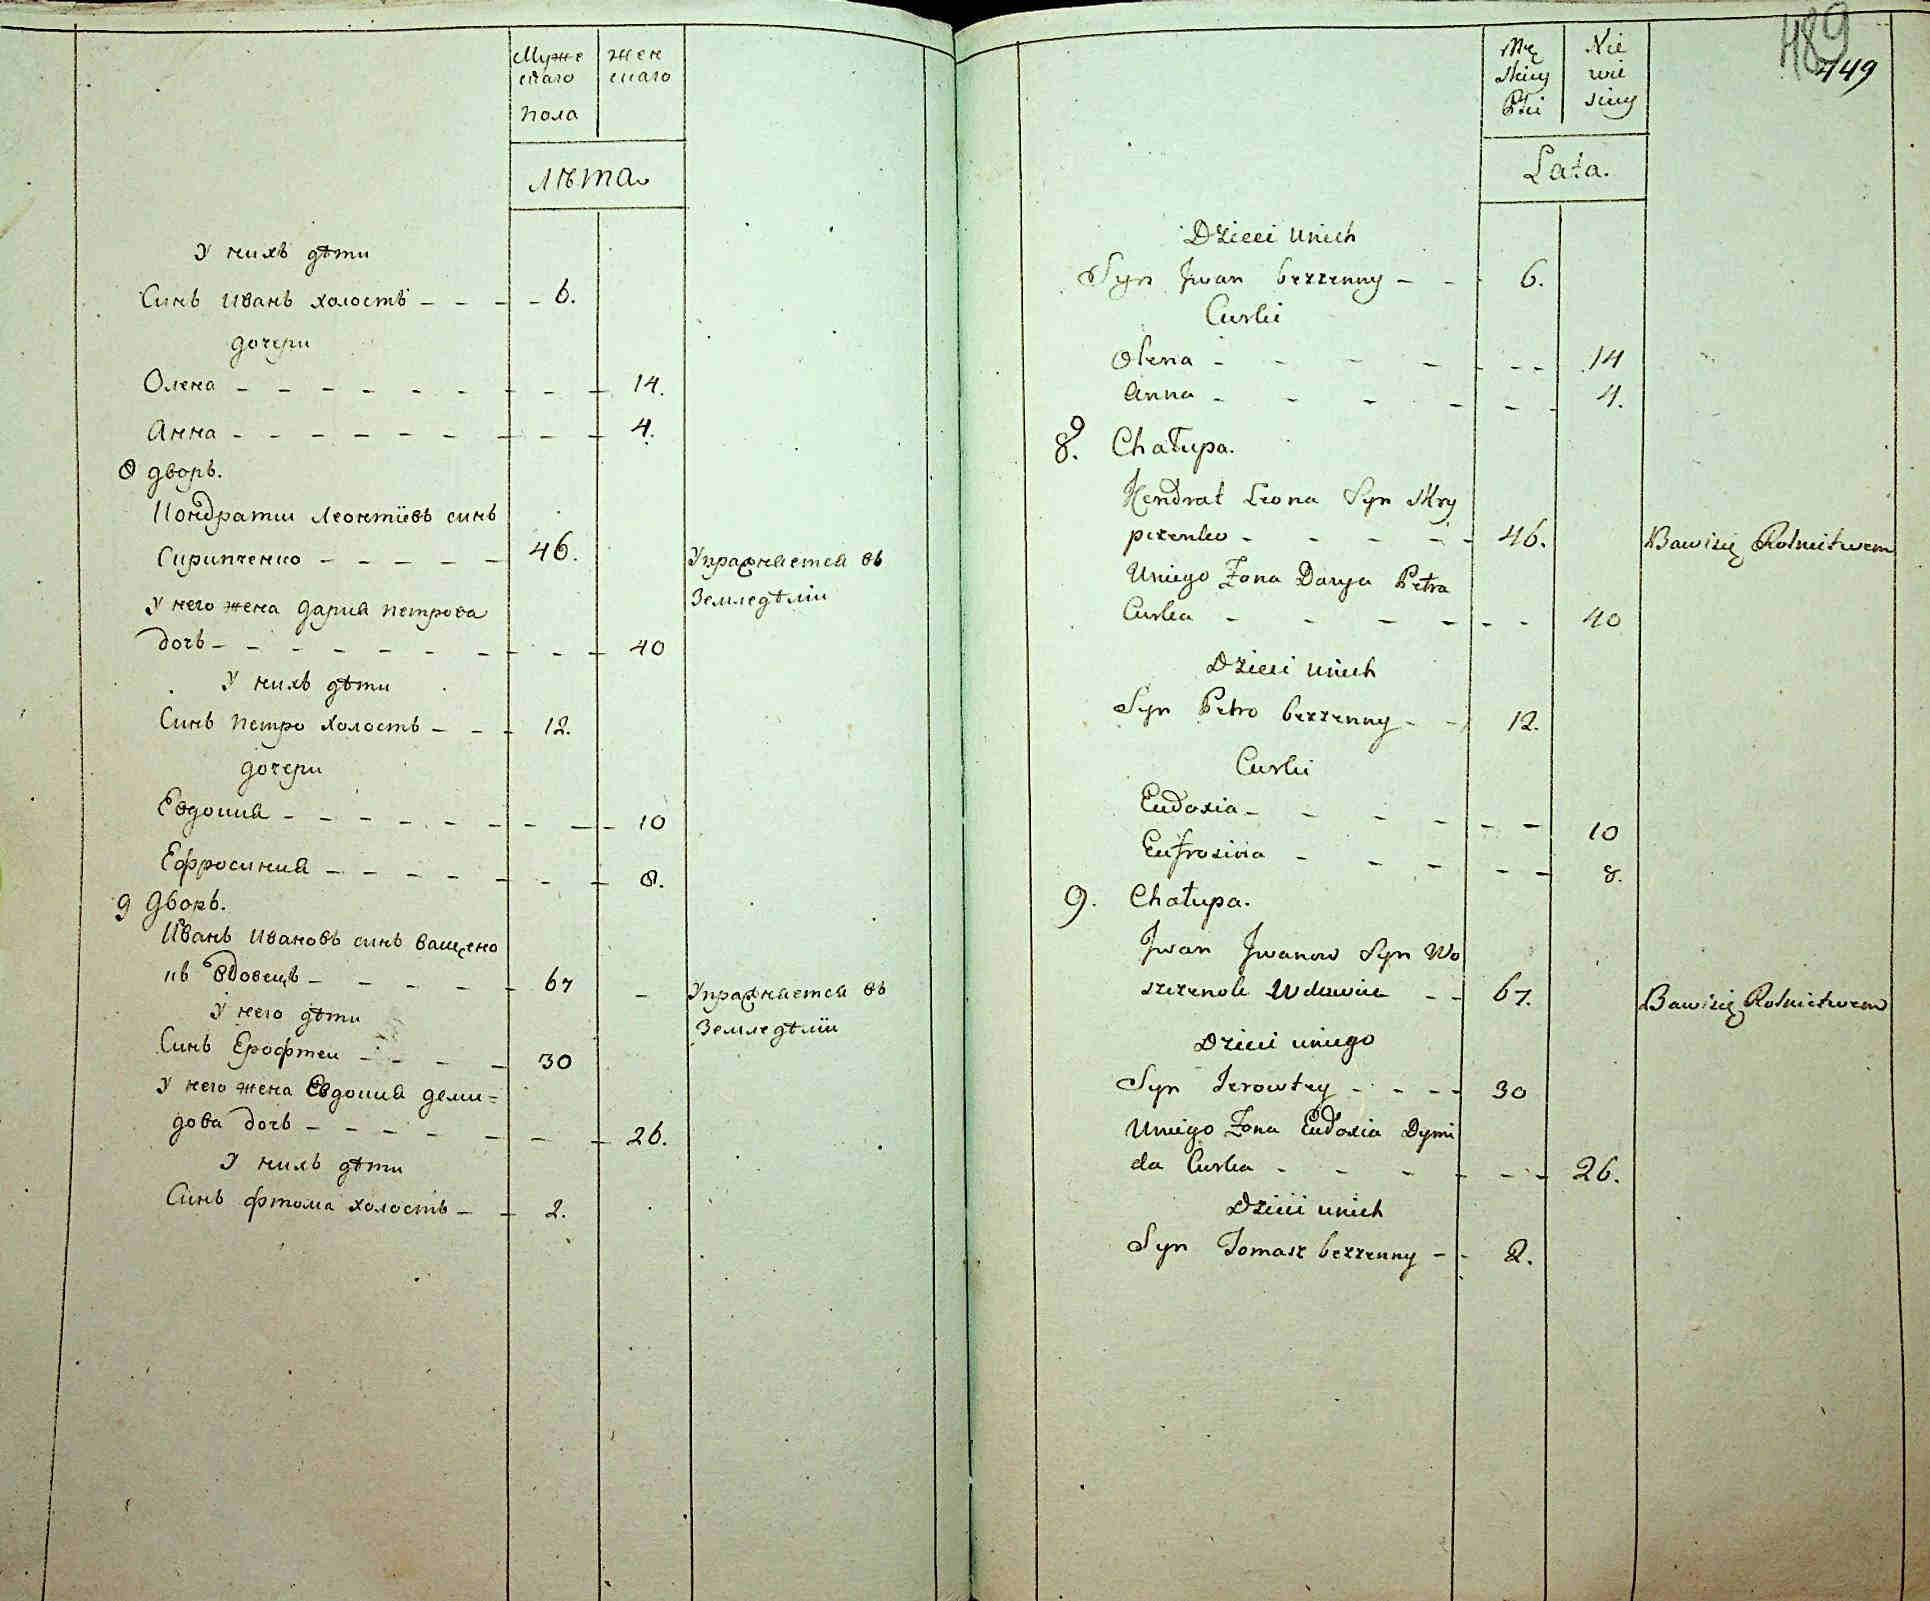 Муже жен
скаго скаго
пола
лѣта
У нихъ дѣти
Синъ Иванъ холостъ - - - - 6.
дочери
Олена - - - - - - - - - 14.
Анна - - - - - - - - - 4.
8 дворъ.
Кондратий Леонтіевъ синъ
Скрипченко - - - - - 46. Упражняется въ
Земледѣлій
У него жена Дария Петрова
дочь - - - - - - - - - 40
У нихъ дѣти
Синъ Петро холостъ - - - 12.
дочери
Евдокия - - - - - - - - - 10
Ефросиния - - - - - - - 8.
9 Дворъ.
Иванъ Ивановъ синъ Ващено
къ вдовецъ - - - - - 67 - Упражняется въ
Земледѣлій
У него дѣти
Синъ Ерофтеи - - - - 30
У него жена Евдокия Деми=
дова дочь - - - - - - - 26.
У нихъ дѣти
Синъ Фтома холостъ - - 2.
489
449
Mę Nie
skiey wie
Płci sciey
Lata.
Dzieci unich
Syn Jwan bezzenny - - 6.
Curki
Olena - - - - - - - 14
Anna - - - - - - 4.
9
8. Chałupa.
Kendrat Leona Syn Skry
pczenko - - - - - 46. Bawi się Rolnictwem
Uniego Zona Darya Petra
Curka - - - - - - 40
Dzieci unich
Syn Petro bezzenny - - 12.
Curki
Eudoxia - - - - - - 10
Eufrosinia - - - - - - 8.
9. Chałupa.
Jwan Jwanow Syn Wo
szczenok Wdowiec - - 67. Bawi się Rolnictwem
Dzieci uniego
Syn Jerowtey - - - - 30
Uniego Zona Eudoxia Dymi
da Curka - - - - - - - 26.
Dzieci unich
Syn Tomasz bezzenny - - 2.